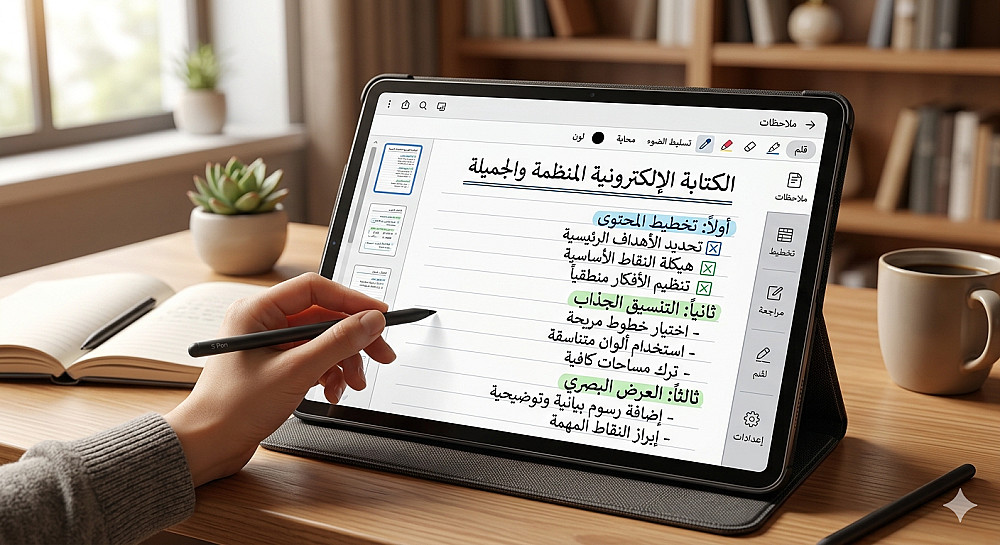 ملاحظات
قلم
تسليط الضوء
محاية
لون
الكتابة الإلكترونية المنظمة والجميلة
أولاً: تخطيط المحتوى
تحديد الأهداف الرئيسية
هيكلة النقاط الأساسية
تنظيم الأفكار منطقياً
ثانياً: التنسيق الجذاب
- اختيار خطوط مريحة
- استخدام ألوان متناسقة
- ترك مساحات كافية
ثالثاً: العرض البصري
- إضافة رسوم بيانية وتوضيحية
- إبراز النقاط المهمة
ملاحظات
تخطيط
مراجعة
إعدادات
S Pen